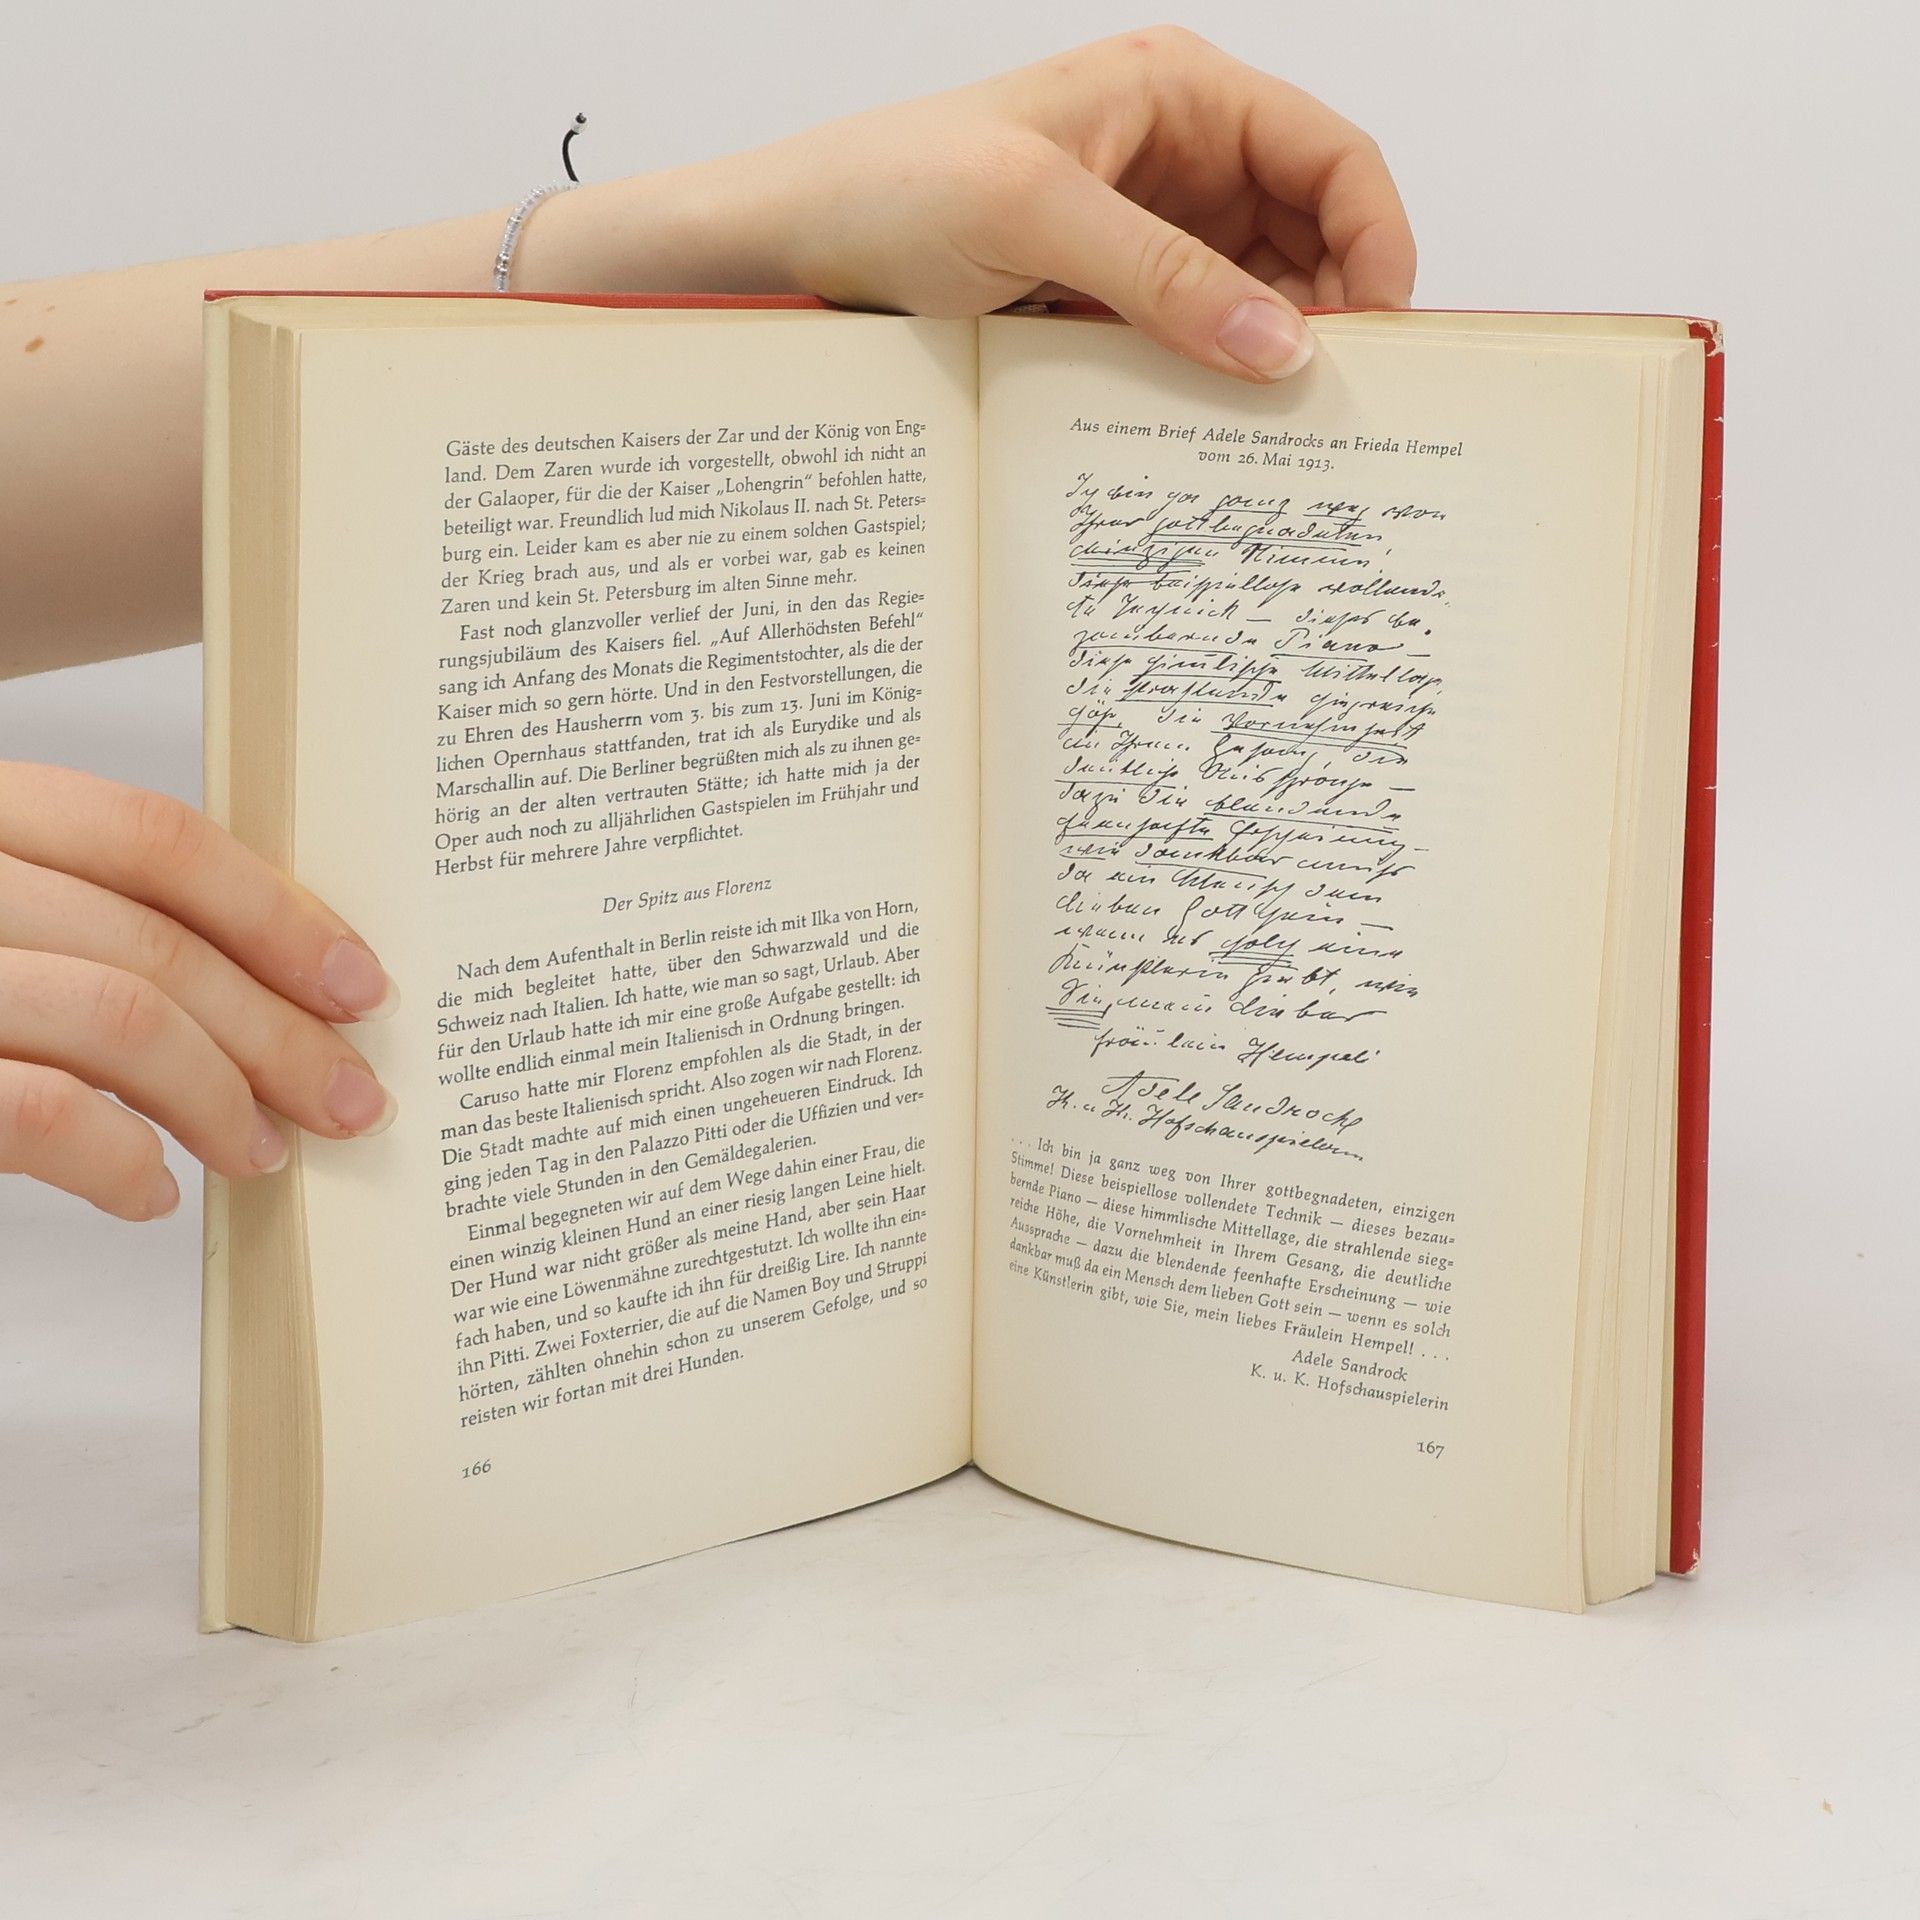 Gäste des deutschen Kaisers der Zar und der König von Eng=
land. Dem Zaren wurde ich vorgestellt, obwohl ich nicht an
der Galaoper, für die der Kaiser „Lohengrin“ befohlen hatte,
beteiligt war. Freundlich lud mich Nikolaus II. nach St. Peters=
burg ein. Leider kam es aber nie zu einem solchen Gastspiel;
der Krieg brach aus, und als er vorbei war, gab es keinen
Zaren und kein St. Petersburg im alten Sinne mehr.
Fast noch glanzvoller verlief der Juni, in den das Regie=
rungsjubiläum des Kaisers fiel. „Auf Allerhöchsten Befehl“
sang ich Anfang des Monats die Regimentstochter, als die der
Kaiser mich so gern hörte. Und in den Festvorstellungen, die
zu Ehren des Hausherrn vom 3. bis zum 13. Juni im König=
lichen Opernhaus stattfanden, trat ich als Eurydike und als
Marschallin auf. Die Berliner begrüßten mich als zu ihnen ge=
hörig an der alten vertrauten Stätte; ich hatte mich ja der
Oper auch noch zu alljährlichen Gastspielen im Frühjahr und
Herbst für mehrere Jahre verpflichtet.
Der Spitz aus Florenz
Nach dem Aufenthalt in Berlin reiste ich mit Ilka von Horn,
die mich begleitet hatte, über den Schwarzwald und die
Schweiz nach Italien. Ich hatte, wie man so sagt, Urlaub. Aber
für den Urlaub hatte ich mir eine große Aufgabe gestellt: ich
wollte endlich einmal mein Italienisch in Ordnung bringen.
Caruso hatte mir Florenz empfohlen als die Stadt, in der
man das beste Italienisch spricht. Also zogen wir nach Florenz.
Die Stadt machte auf mich einen ungeheueren Eindruck. Ich
ging jeden Tag in den Palazzo Pitti oder die Uffizien und ver=
brachte viele Stunden in den Gemäldegalerien.
Einmal begegneten wir auf dem Wege dahin einer Frau, die
einen winzig kleinen Hund an einer riesig langen Leine hielt.
Der Hund war nicht größer als meine Hand, aber sein Haar
war wie eine Löwenmähne zurechtgestutzt. Ich wollte ihn ein=
fach haben, und so kaufte ich ihn für dreißig Lire. Ich nannte
ihn Pitti. Zwei Foxterrier, die auf die Namen Boy und Struppi
hörten, zählten ohnehin schon zu unserem Gefolge, und so
reisten wir fortan mit drei Hunden.
166
Aus einem Brief Adele Sandrocks an Frieda Hempel
vom 26. Mai 1913.
Ich bin ja ganz weg von
Ihrer gottbegnadeten,
einzigen Stimme!
diese beispiellose vollende-
te Technick — dieses be-
zaubernde Piano —
diese himmlische Mittellage,
die strahlende siegreiche
Höhe, die Vornehmheit
in Ihrem Gesang, die
deutliche Aussprache —
dazu die blendende
feenhafte Erscheinung —
wie dankbar muß
da ein Mensch dem
lieben Gott sein —
wenn es solch eine
Künstlerin giebt, wie
Sie, mein liebes
Fräulein Hempel!
Adele Sandrock
K. u. K. Hofschauspielerin
. . . Ich bin ja ganz weg von Ihrer gottbegnadeten, einzigen
Stimme! Diese beispiellose vollendete Technik — dieses bezau=
bernde Piano — diese himmlische Mittellage, die strahlende sieg=
reiche Höhe, die Vornehmheit in Ihrem Gesang, die deutliche
Aussprache — dazu die blendende feenhafte Erscheinung — wie
dankbar muß da ein Mensch dem lieben Gott sein — wenn es solch
eine Künstlerin gibt, wie Sie, mein liebes Fräulein Hempel! . . .
Adele Sandrock
K. u. K. Hofschauspielerin
167